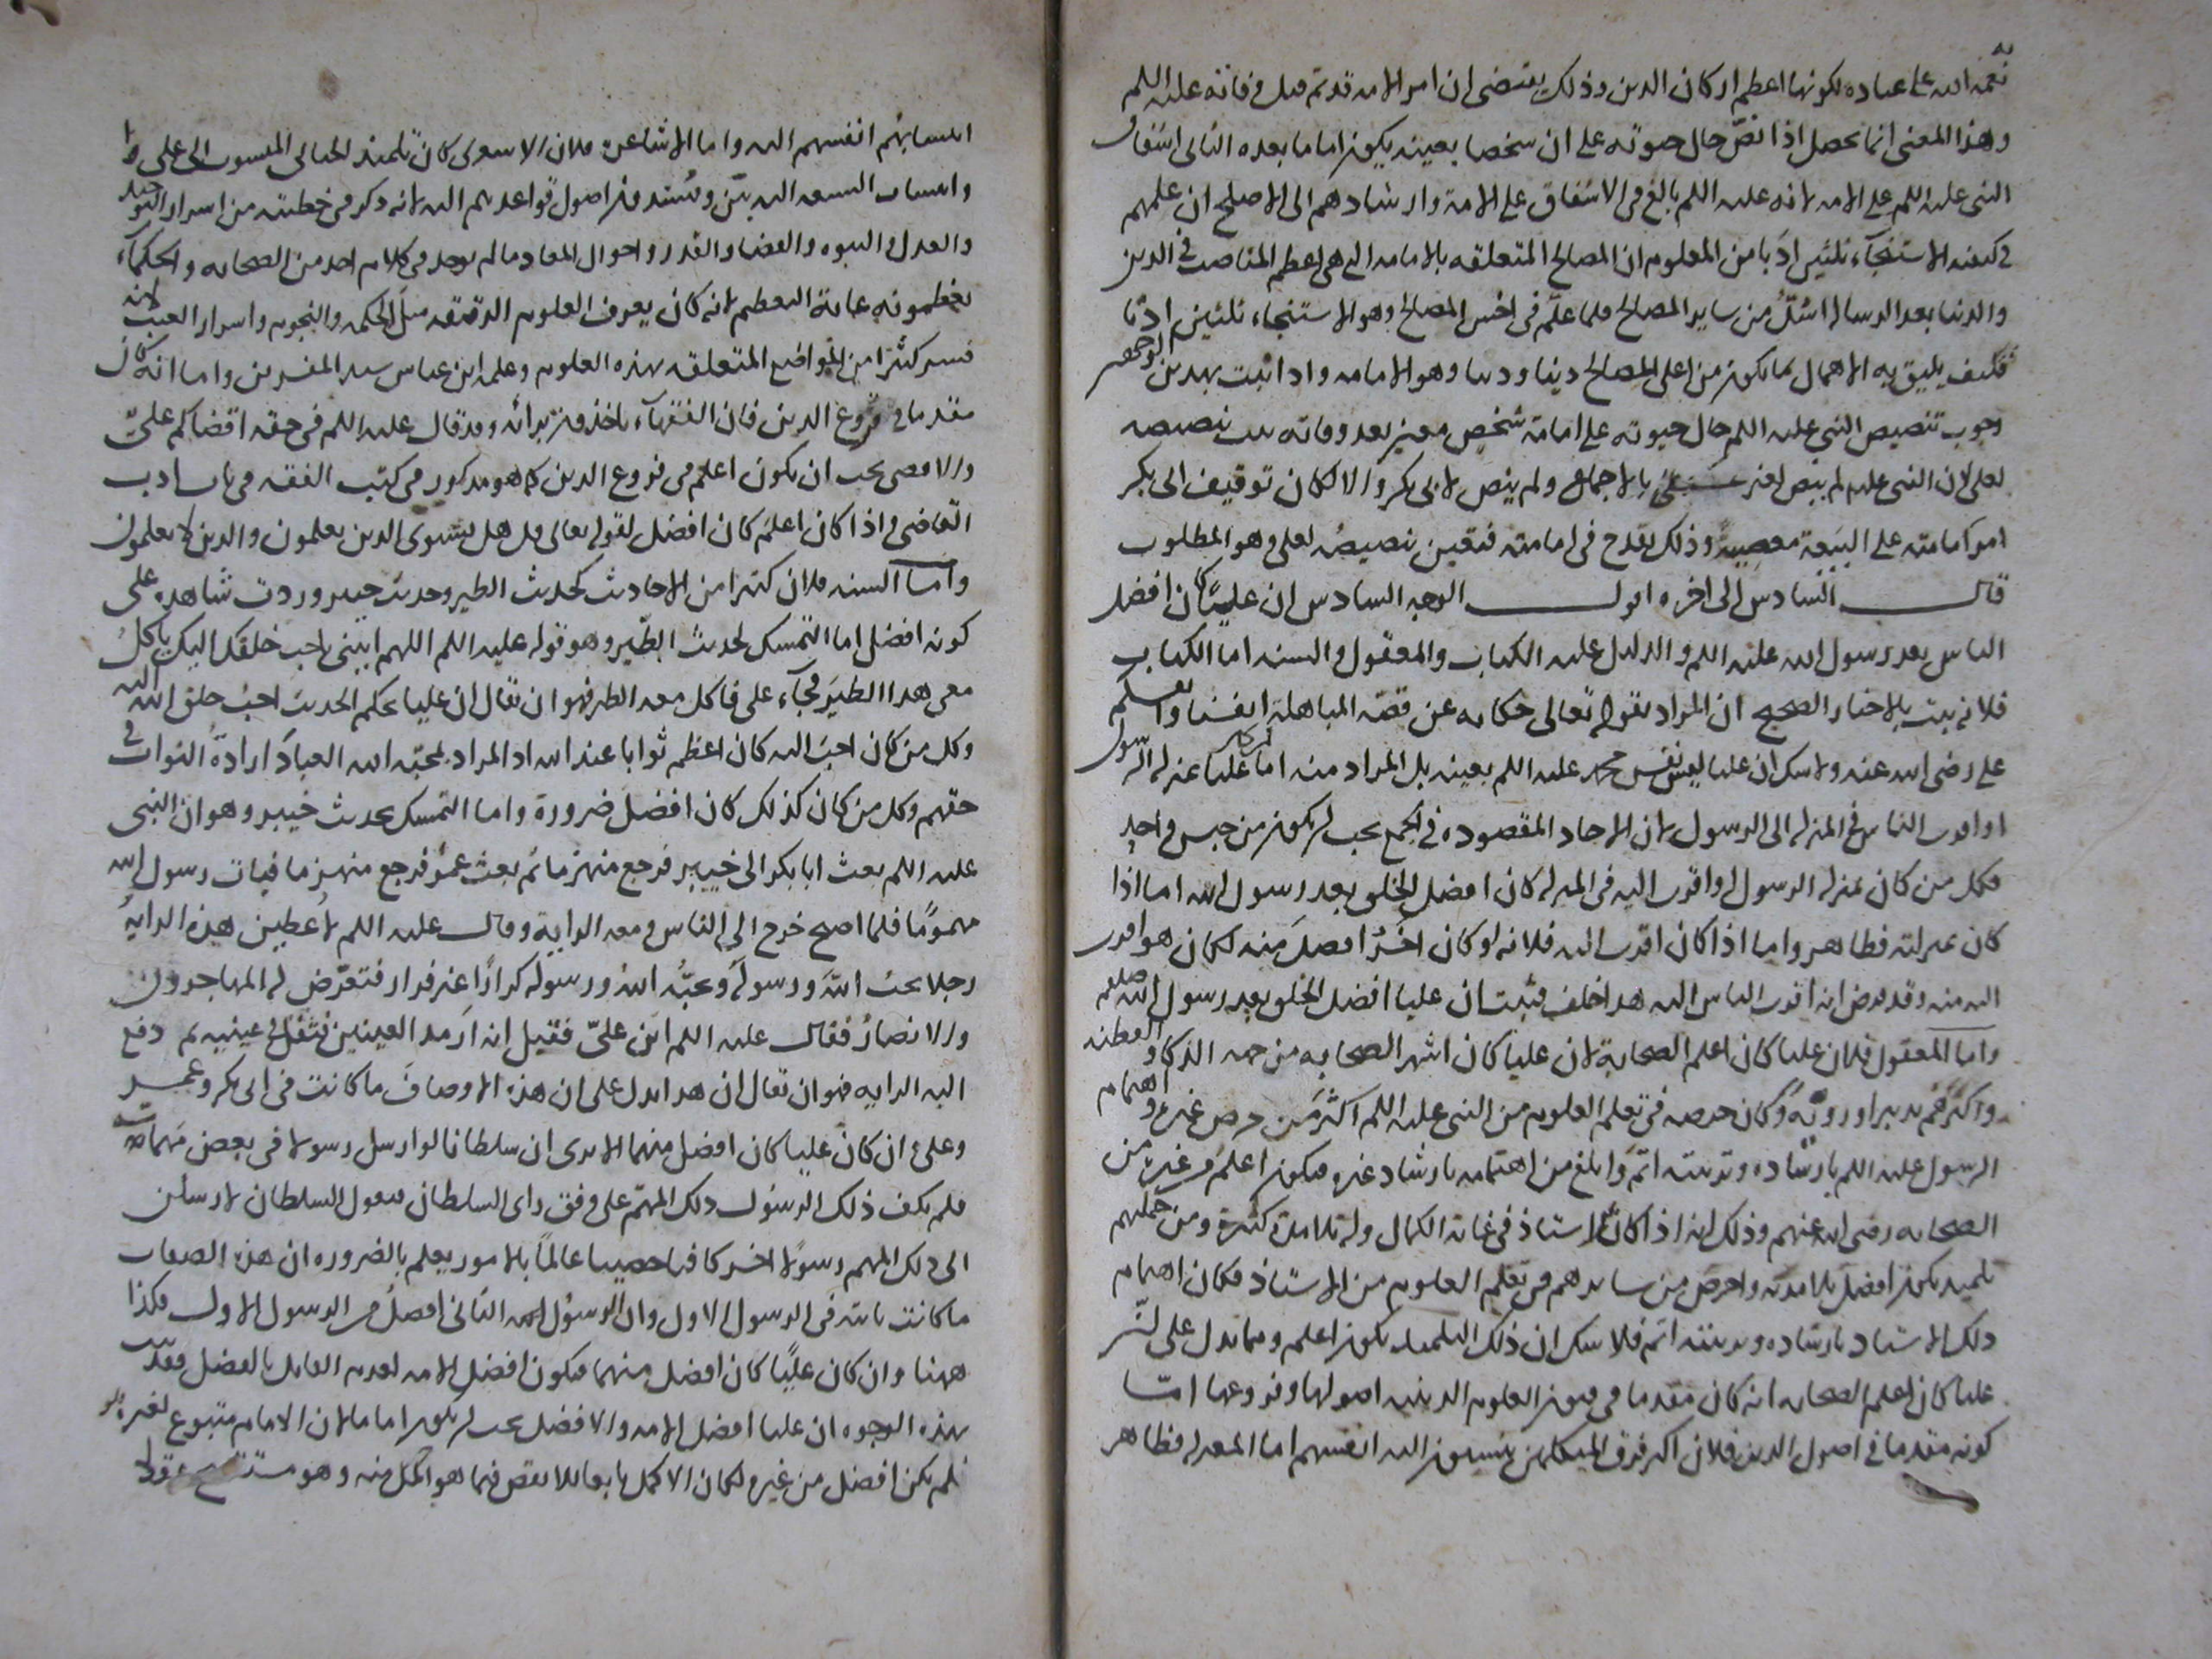 نعمة الله على عباده لكونها اعظم اركان الدين وذلك يقتضى ان امر الامة قد تم قبل وفاته عليه السلم
وهذا المعنى انما يحصل اذا نص حال حيوته على ان شخصا بعينه يكون اماما بعده الثانى اشفاق
النبى عليه السلم على الامة لانه عليه السلم بالغ فى الاشفاق على الامة وارشادهم الى الاصلح ان علمهم
فى كيفية الاستنجآء ثلثين ادبا من المعلوم ان المصالح المتعلقة بالامامة التى هى اعظم المناصب فى الدين
والدنيا بعد الرسالة اشد من ساير المصالح فلما علم فى اخس المصالح وهو الاستنجاء ثلثين ادبا
فكيف يليق به الاهمال بما يكون من اعلى المصالح دينا ودنيا وهو الامامة واذا ثبت بهذين الوجهين
وجوب تنصيص النبى عليه السلم حال حيوته على امامة شخص معين بعد وفاته ثبت تنصيصه
لعلى لان النبى عليه لم ينص لغير على بالاجماع ولم ينص لابى بكر والا لكان توقيف ابى بكر
امر امامته على البيعة معصية وذلك يقدح فى امامته فتعين تنصيصه لعلى وهو المطلوب
قال السادس الى اخره اقول الوجه السادس ان عليا كان افضل
الناس بعد رسول الله عليه السلم والدليل عليه الكتاب والمعقول والسنة اما الكتاب
فلانه ثبت بالاخبار الصحيح ان المراد بقوله تعالى حكاية عن قصة المباهلة انفسنا وانفسكم
على رضى الله عنه ولا شك ان عليا ليس نفس محمد عليه السلم بعينه بل المراد منه اما ان عليا بمنزلة الرسول
او اقرب الناس فى المنزلة الى الرسول لان الاحاد المقصودة فى الجمع يجب ان يكون من جنس واحد
فكل من كان بمنزلة الرسول او اقرب اليه فى المنزلة كان افضل الخلق بعد رسول الله اما اذا
كان بمنزلته فظاهر واما اذا كان اقرب اليه فلانه لو كان اخر افضل منه لكان هو اقرب
اليه منه وقد فرض انه اقرب الناس اليه هذا خلف فثبت ان عليا افضل الخلق بعد رسول الله صلعم
واما المعقول فلان عليا كان اعلم الصحابة لان عليا كان اشهر الصحابة من جهة الذكاء والفطنة
واكثرهم تدبيرا وروية وكان حرصه فى تعلم العلوم من النبى عليه السلم اكثر من حرص غيره واهتمام
الرسول عليه السلم بارشاده وتربيته اتم وابلغ من اهتمامه بارشاد غيره فيكون اعلم من غيره من
الصحابة رضى الله عنهم وذلك لانه اذا كان استاذ فى غاية الكمال وله تلامذة كثيرة ومن جملتهم
تلميذ يكون افضل تلامذته واحرص من سايرهم فى تعلم العلوم من الاستاذ فكان اهتمام
ذلك الاستاد بارشاده وتربيته اتم فلا شك ان ذلك التلميذ يكون اعلم ومما يدل على ان
عليا كان اعلم الصحابة انه كان مقدما فى فنون العلوم الدينية اصولها وفروعها اما
كونه مقدما فى اصول الدين فلان اكثر فرق المتكلمين ينسبون اليه انفسهم اما المعتزلة فظاهر
انتسابهم انفسهم اليه واما الاشاعرة فلان الاشعرى كان تلميذ الجبائى المنسوب الى على
وانتساب الشيعة اليه بين ويستند فى اصول قواعدهم اليه لانه ذكر فى خطبته من اسرار التوحيد
والعدل والنبوة والقضاء والقدر واحوال المعاد ما لم يوجد فى كلام احد من الصحابة والحكمآء
يعظمونه غاية التعظيم لانه كان يعرف العلوم الدقيقة مثل الحكمة والنجوم واسرار الغيب لانه
فسر كثيرا من المواضع المتعلقة بهذه العلوم وعلم ابن عباس سيد المفسرين واما انه كان
مقدما فى فروع الدين فان الفقهآء ياخذون برأيه وقد قال عليه السلم فى حقه اقضاكم على
والاقضى يجب ان يكون اعلم فى فروع الدين كما هو مذكور فى كتب الفقه فى باب ادب
القاضى واذا كان اعلم كان افضل لقوله تعالى قل هل يستوى الذين يعلمون والذين لا يعلمون
واما السنة فلان كثيرا من الاحاديث كحديث الطير وحديث خيبر وردت شاهدة على
كونه افضل اما التمسك بحديث الطير وهو قوله عليه السلم اللهم ايتنى باحب خلقك اليك ياكل
معى هذا الطير فجآء على فاكل معه الطير فهو ان يقال ان عليا بحكم الحديث احب خلق الله اليه
وكل من كان احب اليه كان اعظم ثوابا عند الله اذ المراد بمحبة الله العباد ارادة الثواب فى
حقهم وكل من كان كذلك كان افضل ضرورة واما التمسك بحديث خيبر وهو ان النبى
عليه السلم بعث ابا بكر الى خيبر فرجع منهزما ثم بعث عمر فرجع منهزما فبات رسول الله
مهموما فلما اصبح خرج الى الناس ومعه الراية وقال عليه السلم لاعطين هذه الراية
رجلا يحب الله ورسوله ويحبه الله ورسوله كرارا غير فرار فتعرض له المهاجرون
والانصار فقال عليه السلم اين على فقيل انه ارمد العينين فتفل فى عينيه ثم دفع
اليه الراية فهو ان يقال ان هذا يدل على ان هذه الاوصاف ما كانت فى ابى بكر وعمر
وعلى ان كان عليا كان افضل منهما الا يرى ان سلطانا لو ارسل رسولا فى بعض مهماته
فلم يكف ذلك الرسول ذلك المهم على وفق راى السلطان فيقول السلطان لارسلن
الى ذلك المهم رسولا اخر كافيا حصيبا عالما بالامور يعلم بالضرورة ان هذه الصفات
ما كانت ثابتة فى الرسول الاول وان الرسول الثانى افضل من الرسول الاول فكذا
ههنا وان كان عليا كان افضل منهما فيكون افضل الامة لعدم القايل بالفصل فقد ثبت
بهذه الوجوه ان عليا افضل الامة والافضل يجب ان يكون اماما لان الامام متبوع لغيره
فلم يكن افضل من غيره لكان الاكمل تابعا للانقص فيما هو اكمل منه وهو مستقبح عقلا